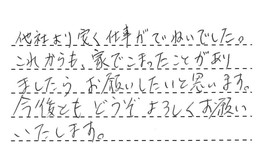 他社より安く仕事がていねいでした。
これからも、家でこまったことがあり
ましたら お願いしたいと思います。
今後とも どうぞよろしくお願い
いたします。